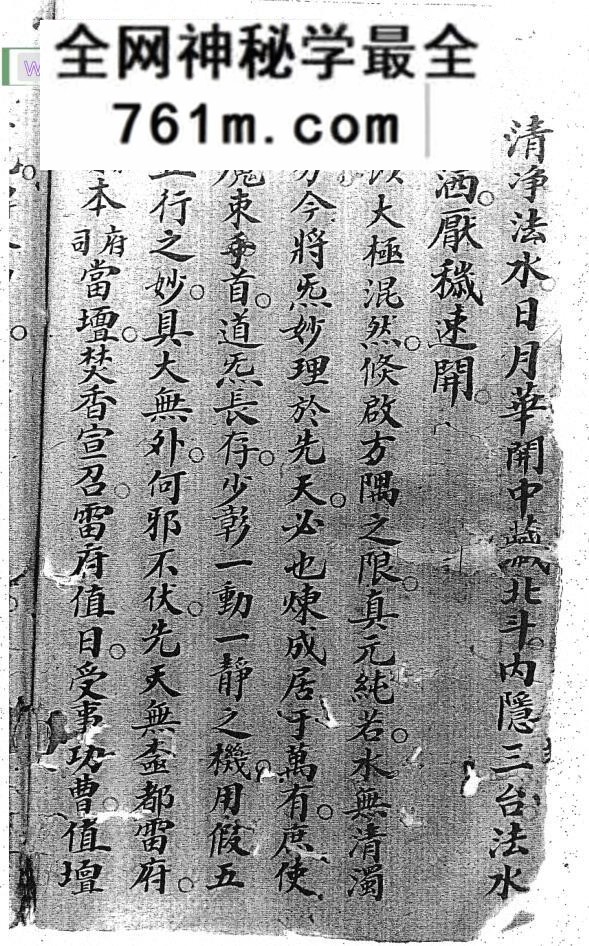 全网神秘学最全
761m.com
W
清净法水。日月華開中藏北斗。内隱三台法水
洒。厭穢速開。
大極混然。倏啟方隅之限。真元純若。水無清濁
今將炁妙理於先天。必也煉成居于萬有。庶使
魔束手首。道炁長存。少彰一動一静之機。用假五
行之妙。具大無外。何邪不伏。先天無盃都雷府。
本府司當壇。焚香宣召。雷府值日。受事功曹。值壇